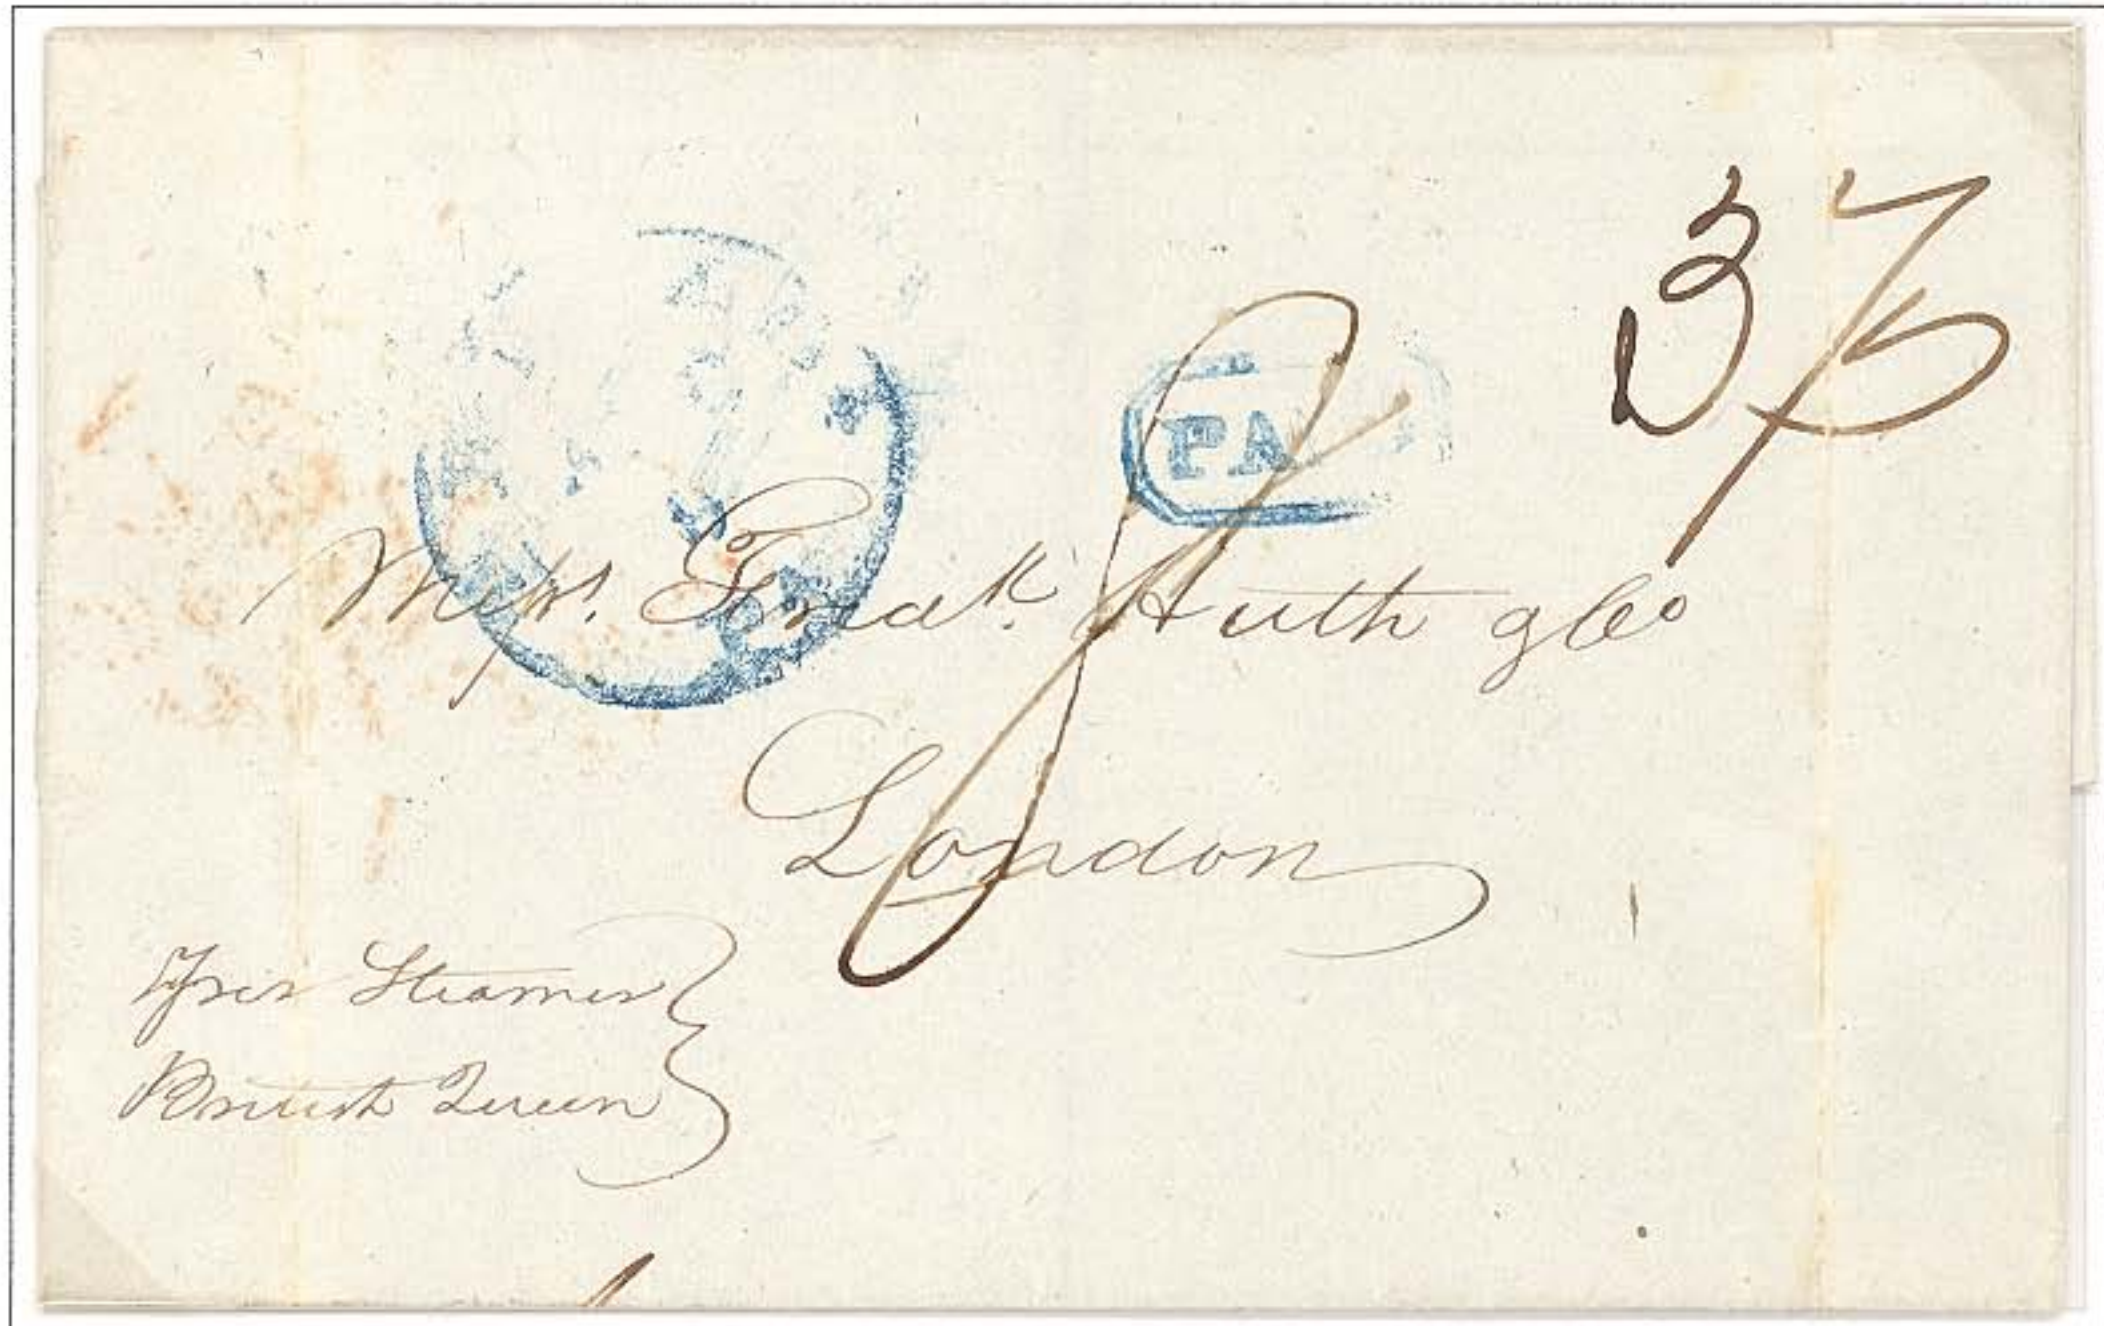 37½
PA
Messrs. Fredk. Huth & Co
London
Per Steamer
British Queen